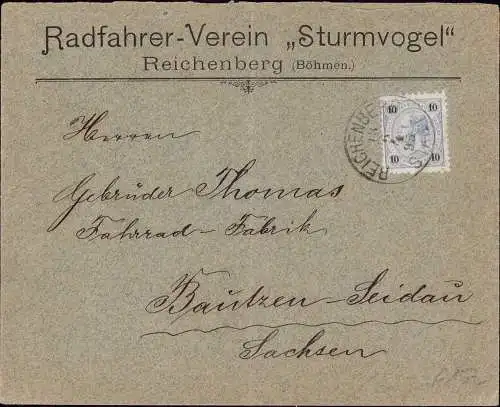 Radfahrer-Verein „Sturmvogel“
Reichenberg (Böhmen.)
10 10
10 10
REICHENBE
STADT
Herren
Gebrüder Thomas
Fahrrad-Fabrik
Bautzen-Seidau
Sachsen